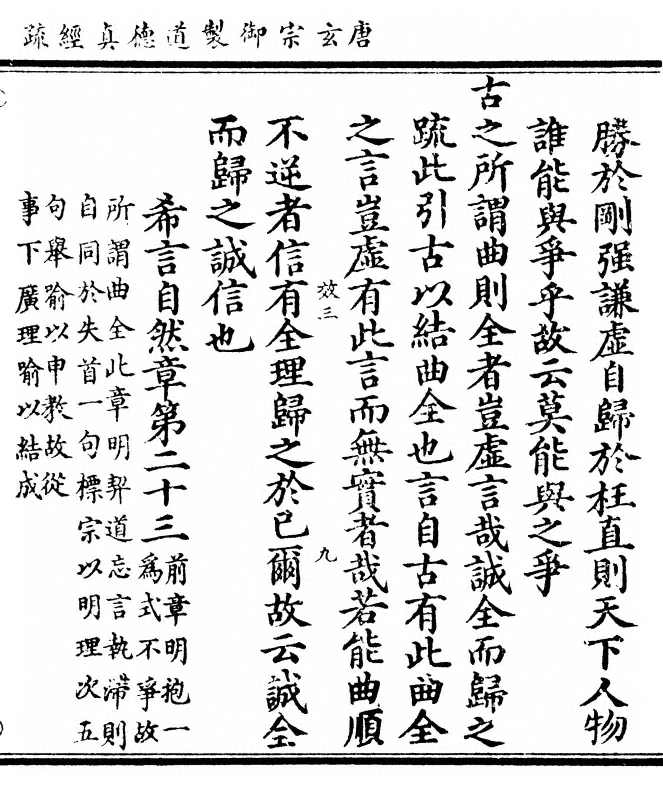 唐玄宗御製道德真經疏
勝於剛强謙虛自歸於枉直則天下人物
誰能與爭乎故云莫能與之爭
古之所謂曲則全者豈虛言哉誠全而歸之
疏此引古以結曲全也言自古有此曲全
之言豈虛有此言而無實者哉若能曲順
效三
九
不逆者信有全理歸之於已爾故云誠全
而歸之誠信也
希言自然章第二十三
前章明抱一
爲式不爭故
所謂曲全此章明契道忘言執滯則
自同於失首一句標宗以明理次五
句舉喻以申教故從
事下廣理喻以結成